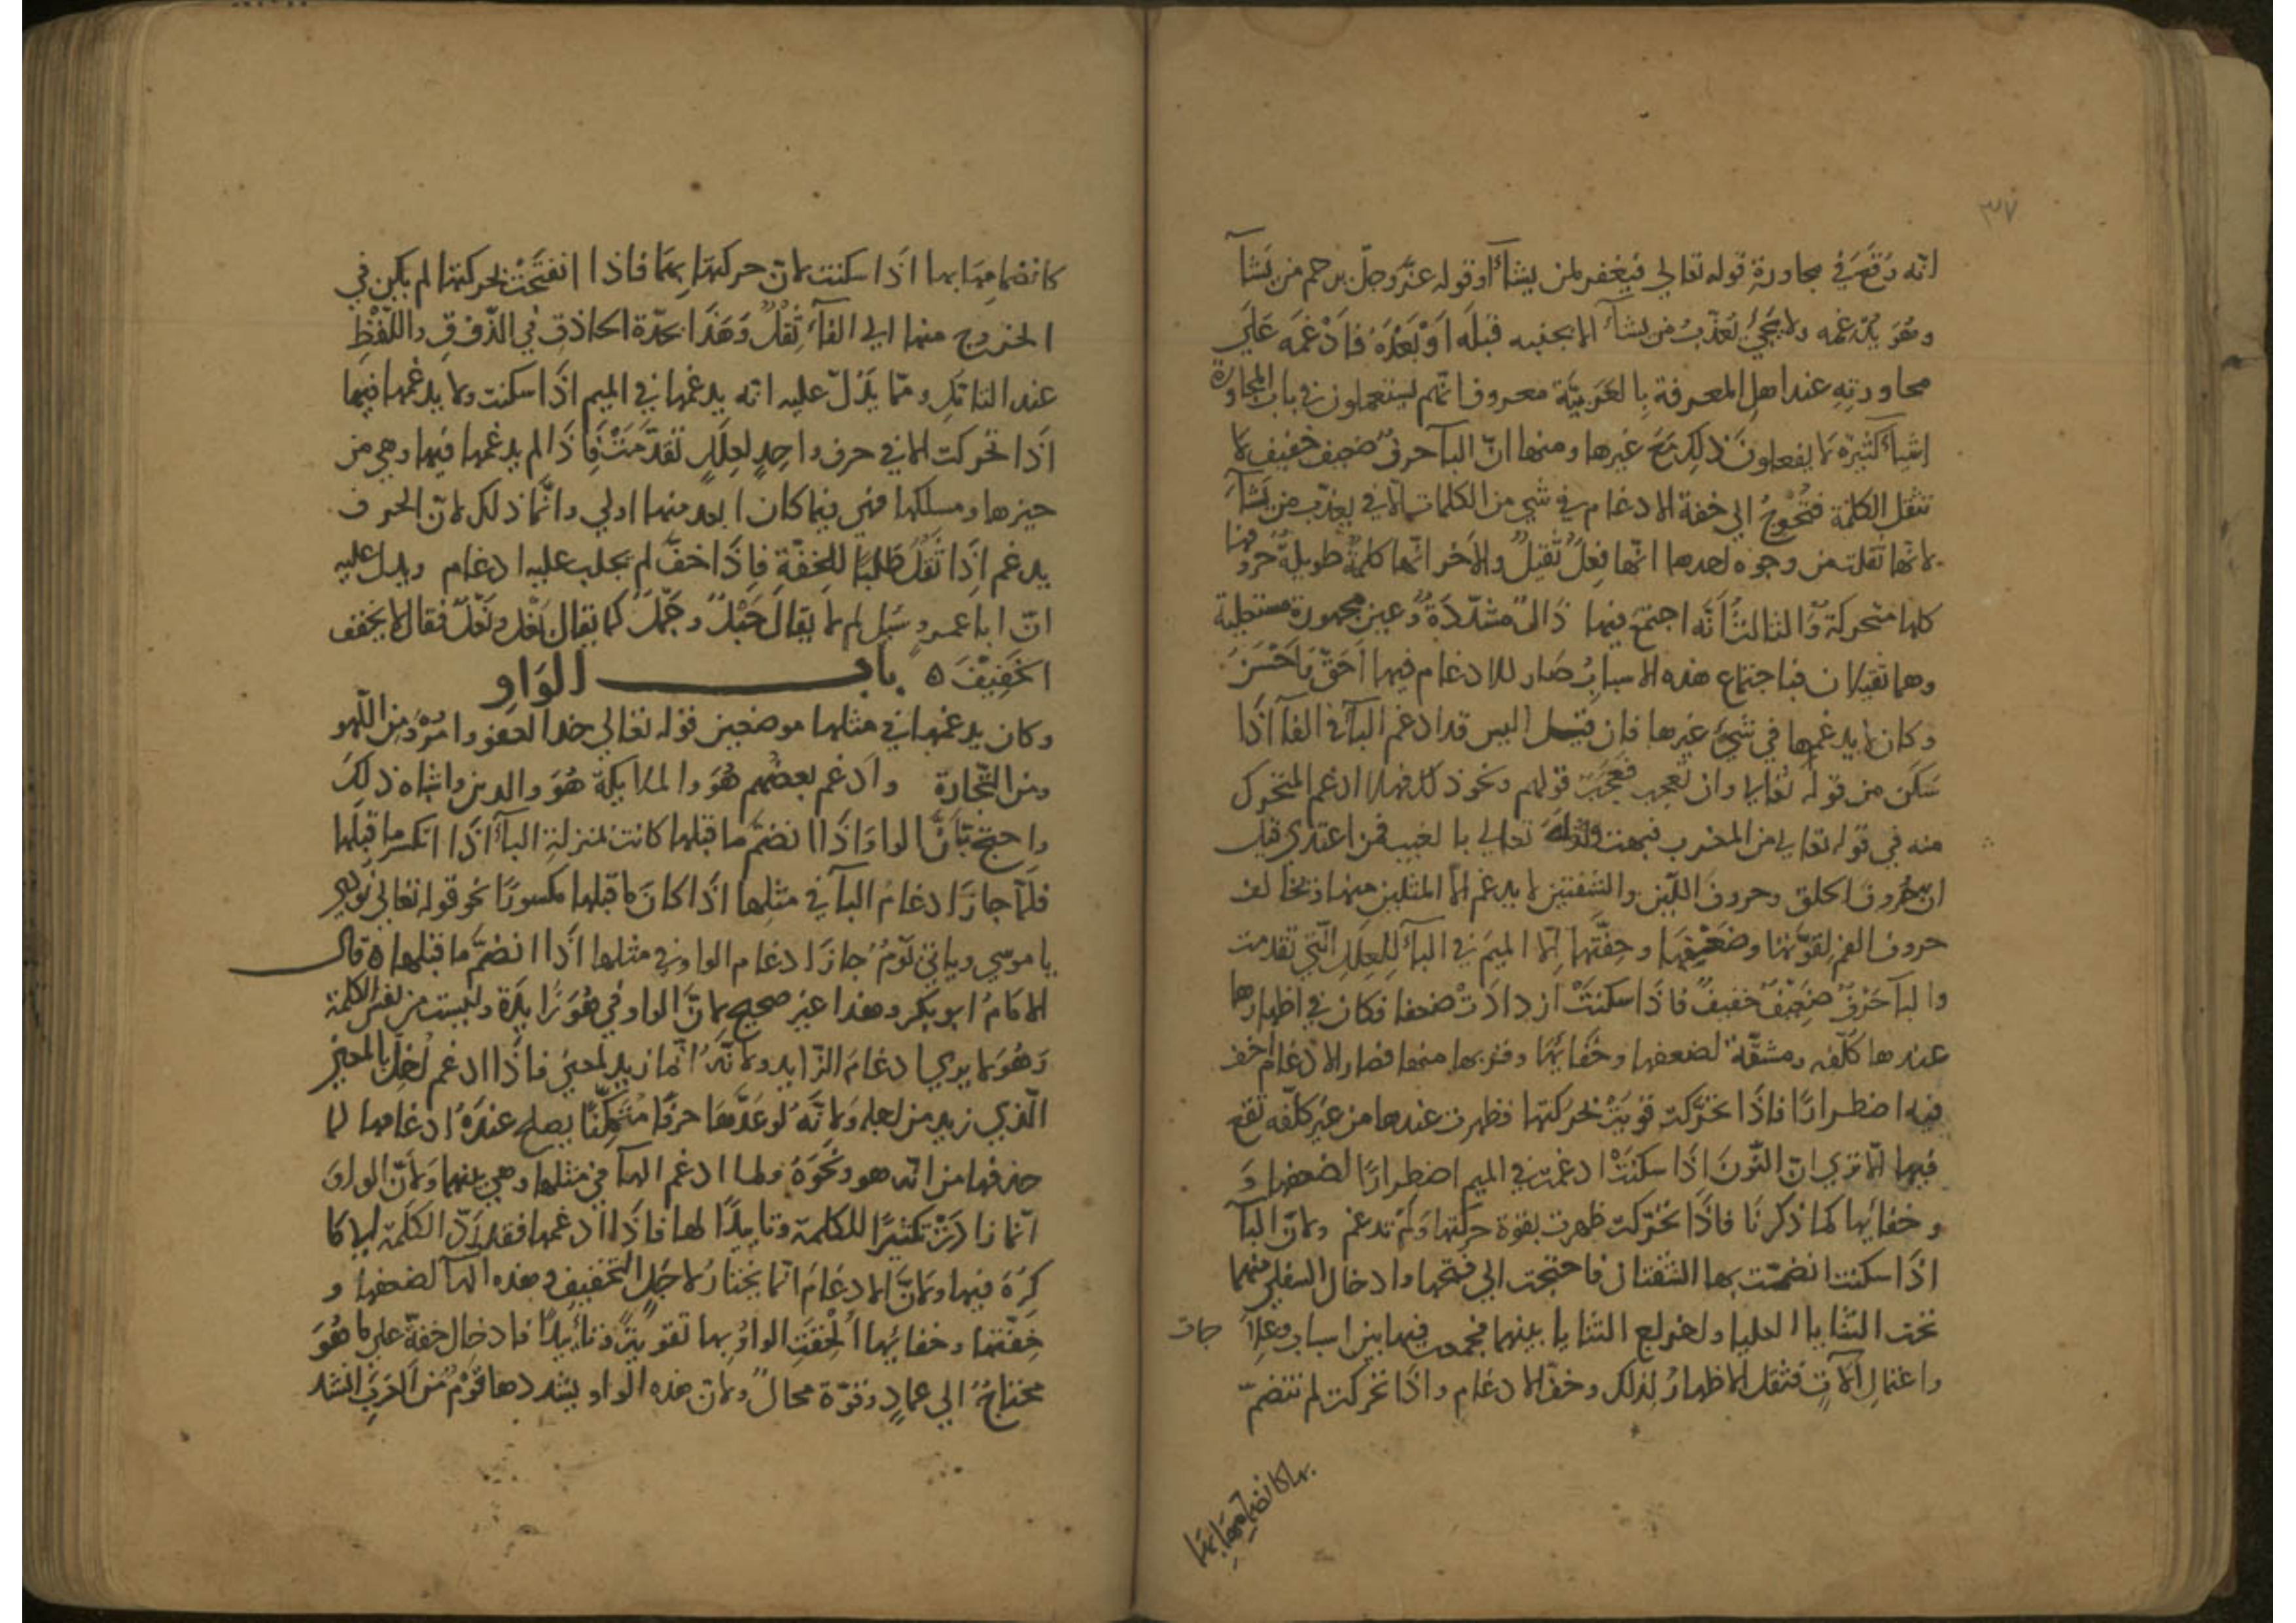 ٣٧
انّه وَقَعَ في مجاورة قوله تعالي فيغفر لمن يشآء او قوله عزّ وجلّ يرحم من يَشآ
وهُوَ يدغمه ولا يَجيُ يُعَذّبُ من يشآء الا بجنبه قبلَه اوْ بَعْدَهُ فادْغمَه عَلَي
مجاورتِهِ عند اهلِ المعرفة بِالعَرَبيّة معروف انّهم ليستعملون في باب المجاورة
اشيآء كثيرة لا يفعلونَ ذلِك مَعَ غيرها ومنها انّ البآ حرفٌ ضعيف خفيف لا
تثقل الكلمة فتُحْوِجُ الي خفة الادغام في شي من الكلمات الا في يعذّب من يَشآءَ
لانّها ثقلت من وجوه احدها انّها فِعلٌ ثقيلٌ والاخر انّها كلمةٌ طويلةٌ حروفها
كلها متحركة والثالثُ انّه اجتمعَ فيها ذَالٌ مشدّدَةٌ وعين مجهورة مستعلية
وهما ثقيلان فباجتماع هذه الاسبابُ صَار للادغام فيها احَقّ وَاحْسَنَ
وكان لا يدغمها في شيء غيرها فان قيل اليس قد ادغم البآء في الفآ اذَا
سَكَن من قوله تعالي وان تعجب فعجَبٌ قولهم ونحو ذلك فهلا ادغم المتحرك
منه في قوله تعالي من المغرب فبهت وقوله تعالي بالغيب فمن اعتدي قيل
ان حُروف الحلق وحروفَ اللّين والشفتين لا يدغم الا المثلين منها وتخالف
حروف الفم لقوّتها وضَعْفِها وخِفّتها الا الميمَ في البآء لِلعِلَلِ الّتي تقدمت
والبآ حَرْفٌ ضَعِيْفٌ خفيفٌ فاذَا سكنَتْ ازدادَتْ ضعفا فكان في اظهارها
عندها كلّفه ومشقّة لضعفها وخَفَائها وقربها منها فصار الادغام اخف
فيه اضطرارًا فاذَا تحرّكت قويَتْ بحركتها فظهرت عندها من غير كلّفه تقع
فيها الا تري انّ النّونَ اذَا سكنَتْ ادغمت في الميم اضطرارًا لضعفها وَ
وخفائها كما ذكرنَا فاذَا تحرّكت ظهرت بقوة حركتها وَلمْ تدغم ولانّ البآ
اذَا سكنت انضمّت بها الشفتان فاحتجت الي فتحها وادخال السفلي منهما
تحت الثنايا العليا ولخروج الثنايا بينهما فجمعت فيها بين اسباب وعِلاجَات
واعمَالِ آلاتٍ فثقل الاظهارُ لِذلك وخفّ الادغام واذَا تحركت لم تنضمّ
بها كانضمامِهَا بهَا
كانضمامِهَا بها اذَا سكنت لانّ حركتهَا بهَا فاذا انفتَحَتْ بحركتها لم يكن في
الخروج منها الي الفآء ثِقْلٌ وَهَذَا يجدّه الحاذق في الذّوْقِ واللّفْظِ
عند التاتكِ وممّا يَدُلّ عليه انّه يدغمها في الميم اذَا سكنت ولا يدغمها فيها
اذَا تحركت الا في حرف واحِدٍ لعِلَلٍ تَقَدّمَتْ فَاذَا لم يدغمها فيها وهي من
حيزها ومسلكها فهي فيما كان ابعد منها اولي وانّما ذلك لانّ الحرف
يدغم اِذَا ثَقلَ طَلَبًا للخفّةِ فاِذَا خفّ لم تجلب عليه ادغام ويدل عليه
انّ ابا عمرو سُيِل لم لا يقال حَبْلٌ وجَمْلٌ كما يقال بَغْل ونَعْلٌ فقال لا يخفف
الخَفِيْفَ ه باب الوَاوِ
وكان يدغمها في مثلها موضعين قوله تعالي خذ العفو وامُرْ ومن اللّهو
ومن التّجارة وادغم بعضُهم هُوَ والملايكة هُوَ والدين واشباه ذلكَ
واحتج بأنّ الواو اذَا انضمّ ما قبلها كانت بمنزلة اليآء اذَا انكسر ما قبلَها
فلمّا جازَ ادغامُ اليآ في مثلِها اذَا كانَ ما قبلها مكسورًا نحو قوله تعالي نُودِي
يا موسي وياتيَ يَوْمٌ جازَ ادغام الواو في مثلها اذَا انضمّ ما قبلها ه قال
الامَامُ ابو بكر وهذا غير صحيح لانّ الواو في هُوَ زَايدَة وليست من نفس الكلمة
وَهُوَ لا يري ادغامَ الزّايد ولانّهُ انّما زيد لمعني فاذَا ادغم اُخِلّ بالمعني
الّذي زيد من اجله ولانّهُ لو عَدّهَا حرفًا متمكّنًا يصلح عندَهُ ادغامها لما
حذفها من انّه هو ونَحْوَهُ ولما ادغم الهآ في مثلها وهي بينهما ولأنّ الواوَ
انّما زادَتْ تكثيرًا للكلمة وتاييدًا لها فاذَا ادغمها فقد رَدّ الكلمة الي ما
كرُهَ فيها ولانّ الادغامَ انّما يختارُ لاجَلِ التخفيف وهذه الهآ لضعفها و
خفّتها وخفائها اُلحِقَتِ الواوُ بها تقويَةً وتأييدًا فادخال خفّةٍ علي ما هُوَ
محتاجٌ الي عمادٍ وقوّة محالٌ ولانّ هذه الواو يشددها قَوْمٌ من العَرَبِ انشد